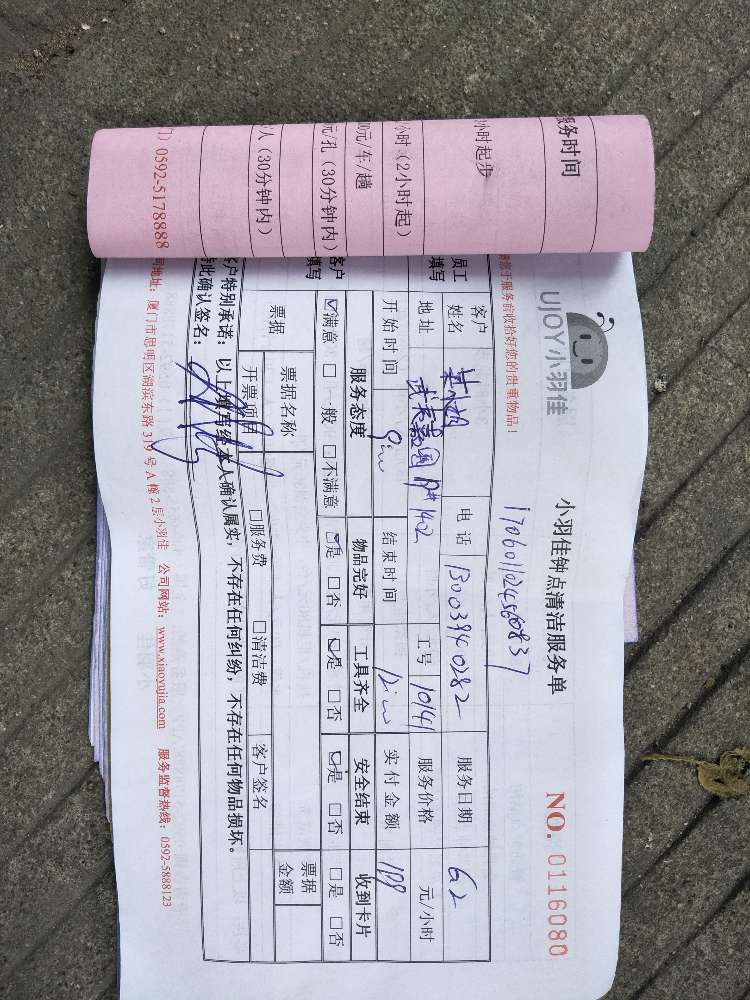 UJOY小羽佳
小羽佳钟点清洁服务单
NO. 0116080
1706011024560837
客户姓名 电话 13003940282 服务日期 6.2
地址 工号 10141 服务价格 元/小时
开始时间 结束时间 实付金额
服务态度 物品完好 工具齐全 安全结束 收到卡片
☑满意 □一般 □不满意 ☑是 □否 ☑是 □否 ☑是 □否 □是 □否
票据 票据名称 票据金额
开票项目 □服务费 □清洁费 客户签名
客户特别承诺：以上填写经本人确认属实，不存在任何纠纷，不存在任何物品损坏。
此确认签名：
司地址：厦门市思明区湖滨东路319号A幢2层小羽佳 公司网站：www.xiaoyujia.com 服务监督热线：0592-5888123
服务时间
小时起步
小时（2小时起）
0元/车/趟
元/孔（30分钟内）
人（30分钟内）
门）0592-5178888
员工填写
客户填写
服务前收拾好您的贵重物品！